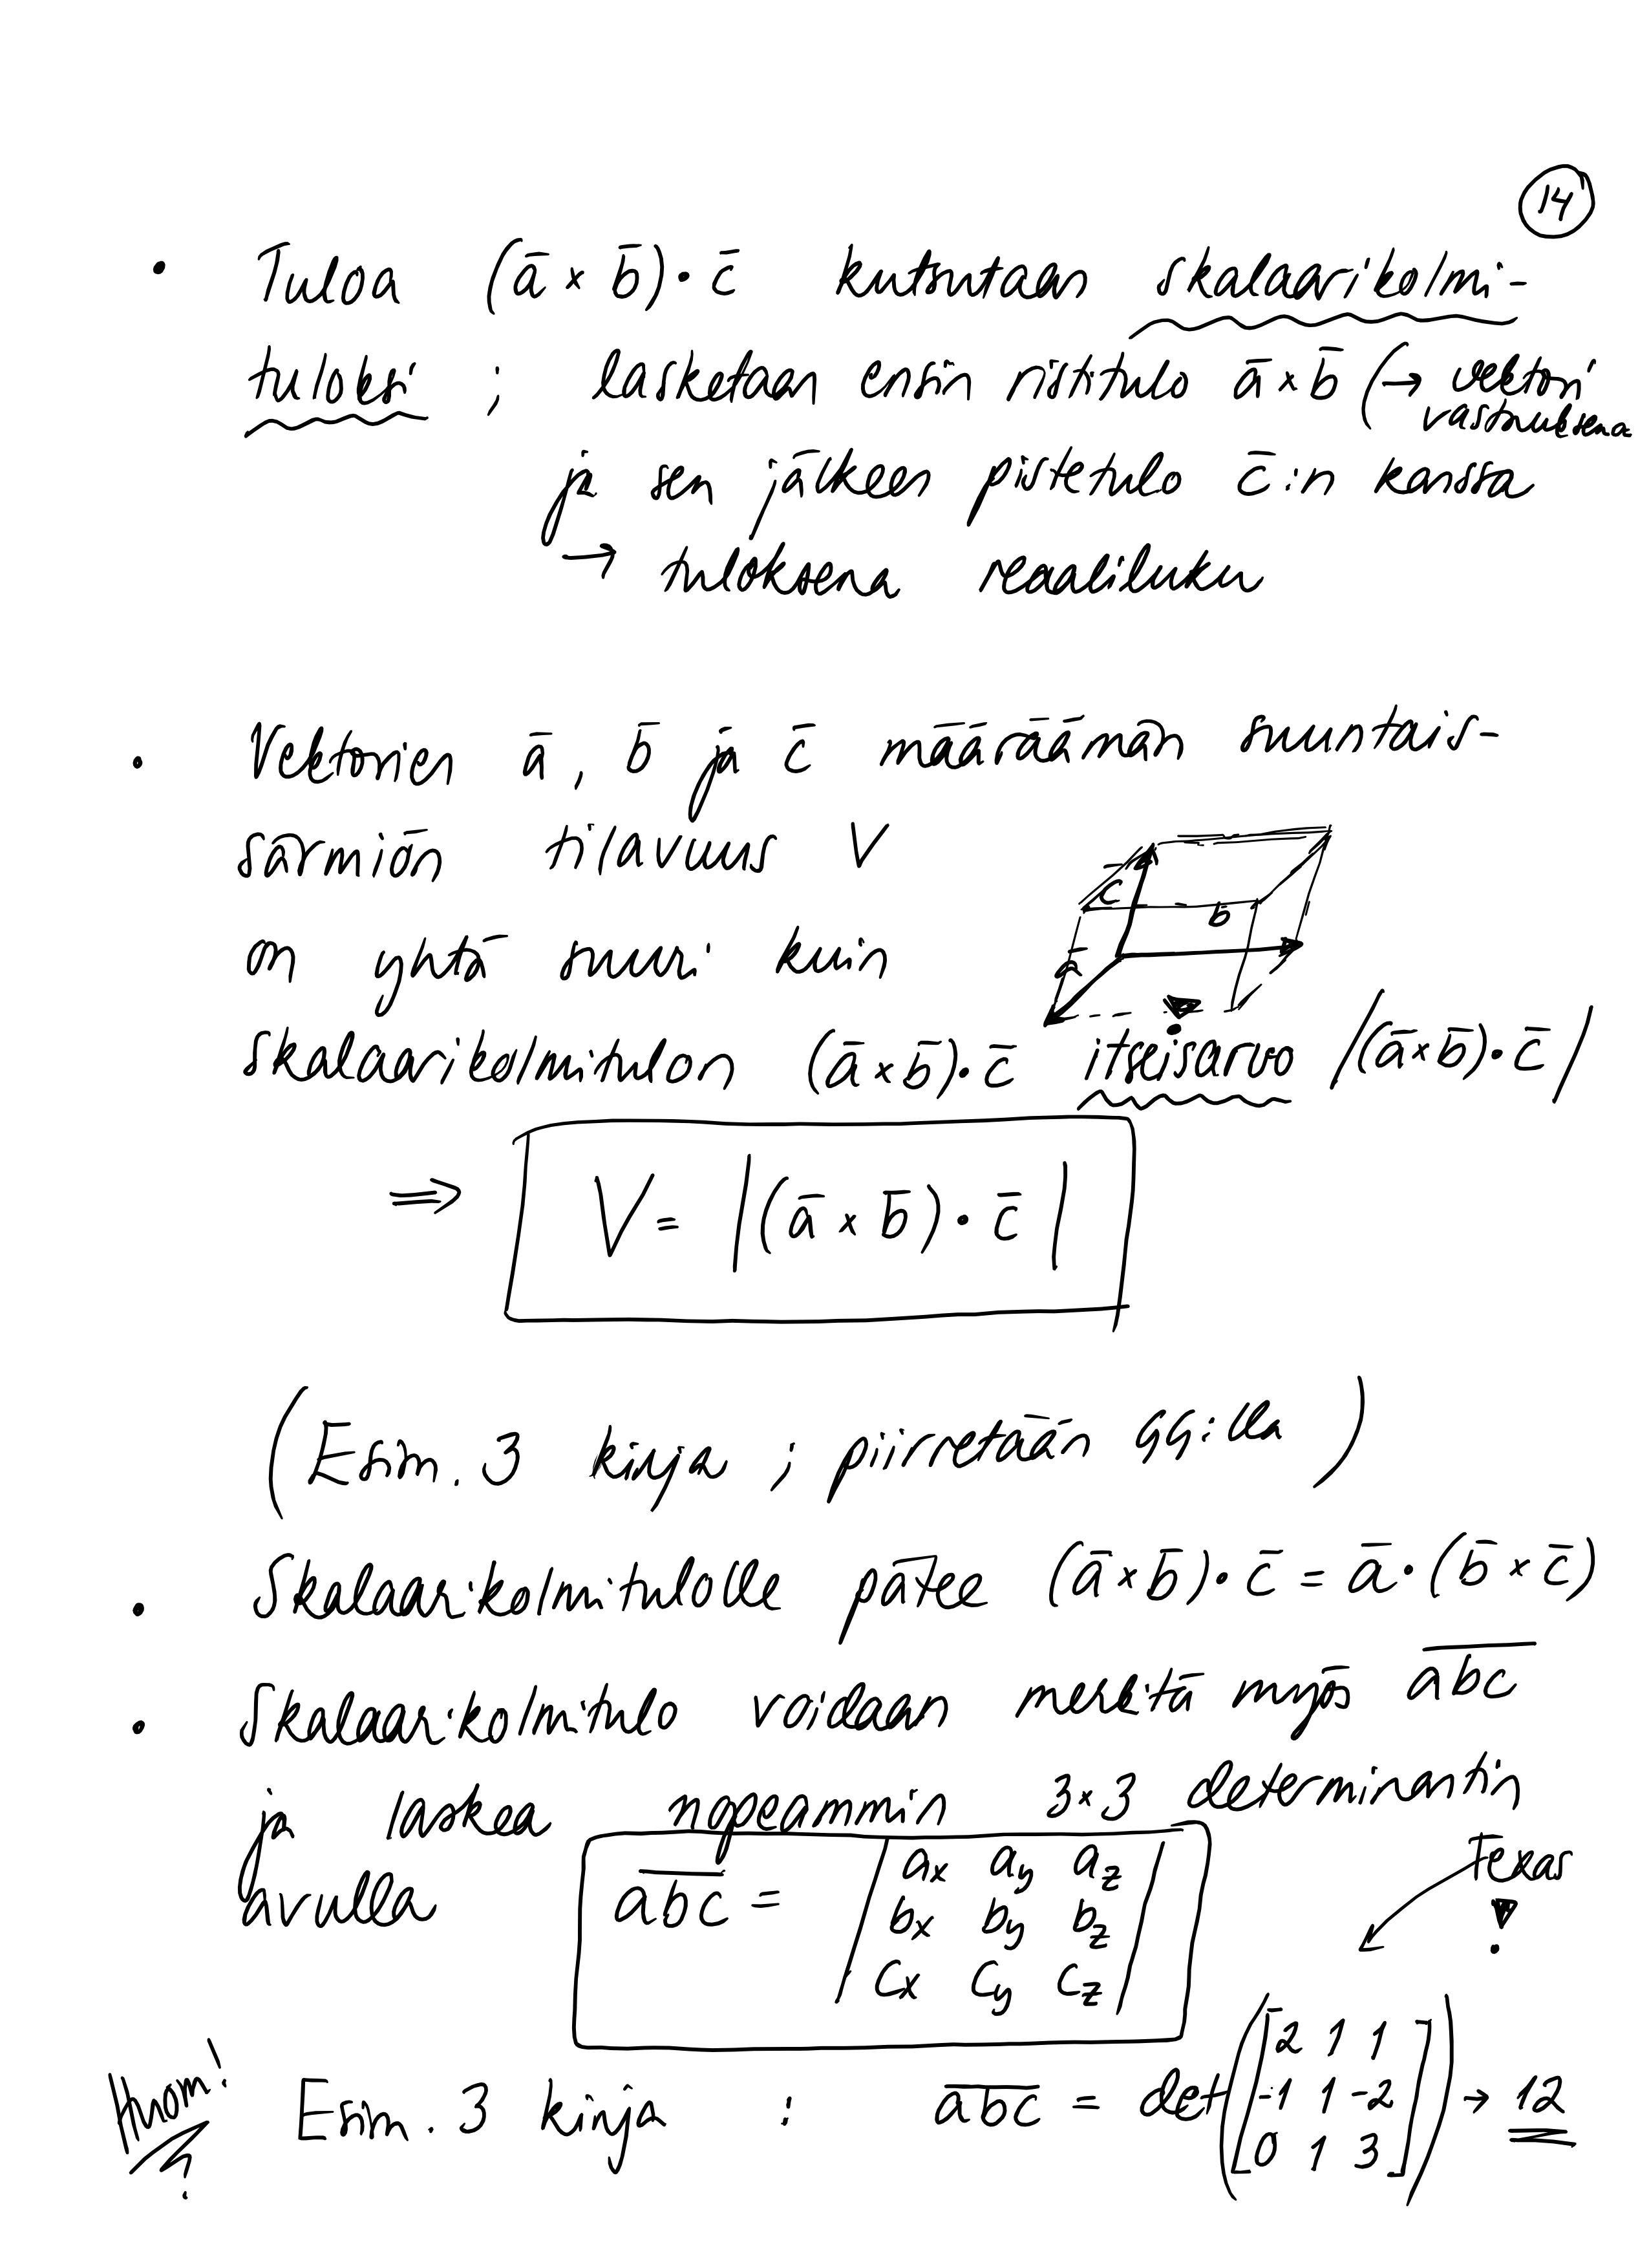 14
• Tuloa (a̅ × b̅) • c̅ kutsutaan skalaarikolmi-
tuloksi ; lasketaan ensin ristitulo a̅ × b̅ (→ vektori
vastauksena
ja sen jälkeen pistetulo c̅:n kanssa
→ tuloksena reaaliluku
• Vektorien a̅, b̅ ja c̅ määräämän suuntais-
särmiön tilavuus V
c̅
b
a̅
on yhtä suuri kuin
skalaarikolmitulon (a̅ × b̅) • c̅ itseisarvo |(a̅ × b̅) • c̅|
⇒ V = |(a̅ × b̅) • c̅|
(Esim. 3 kirja ; piirretään GG:lla)
• Skalaarikolmitulolle pätee (a̅ × b̅) • c̅ = a̅ • (b̅ × c̅)
• Skalaarikolmitulo voidaan merkitä myös a̅b̅c̅
ja laskea nopeammin 3×3 determinantin
avulla a̅b̅c̅ = | a_x a_y a_z
b_x b_y b_z
c_x c_y c_z |
Texas
!
Huom! Esim. 3 kirja : a̅b̅c̅ = det([2 1 1
-1 1 -2
0 1 3]) → 12